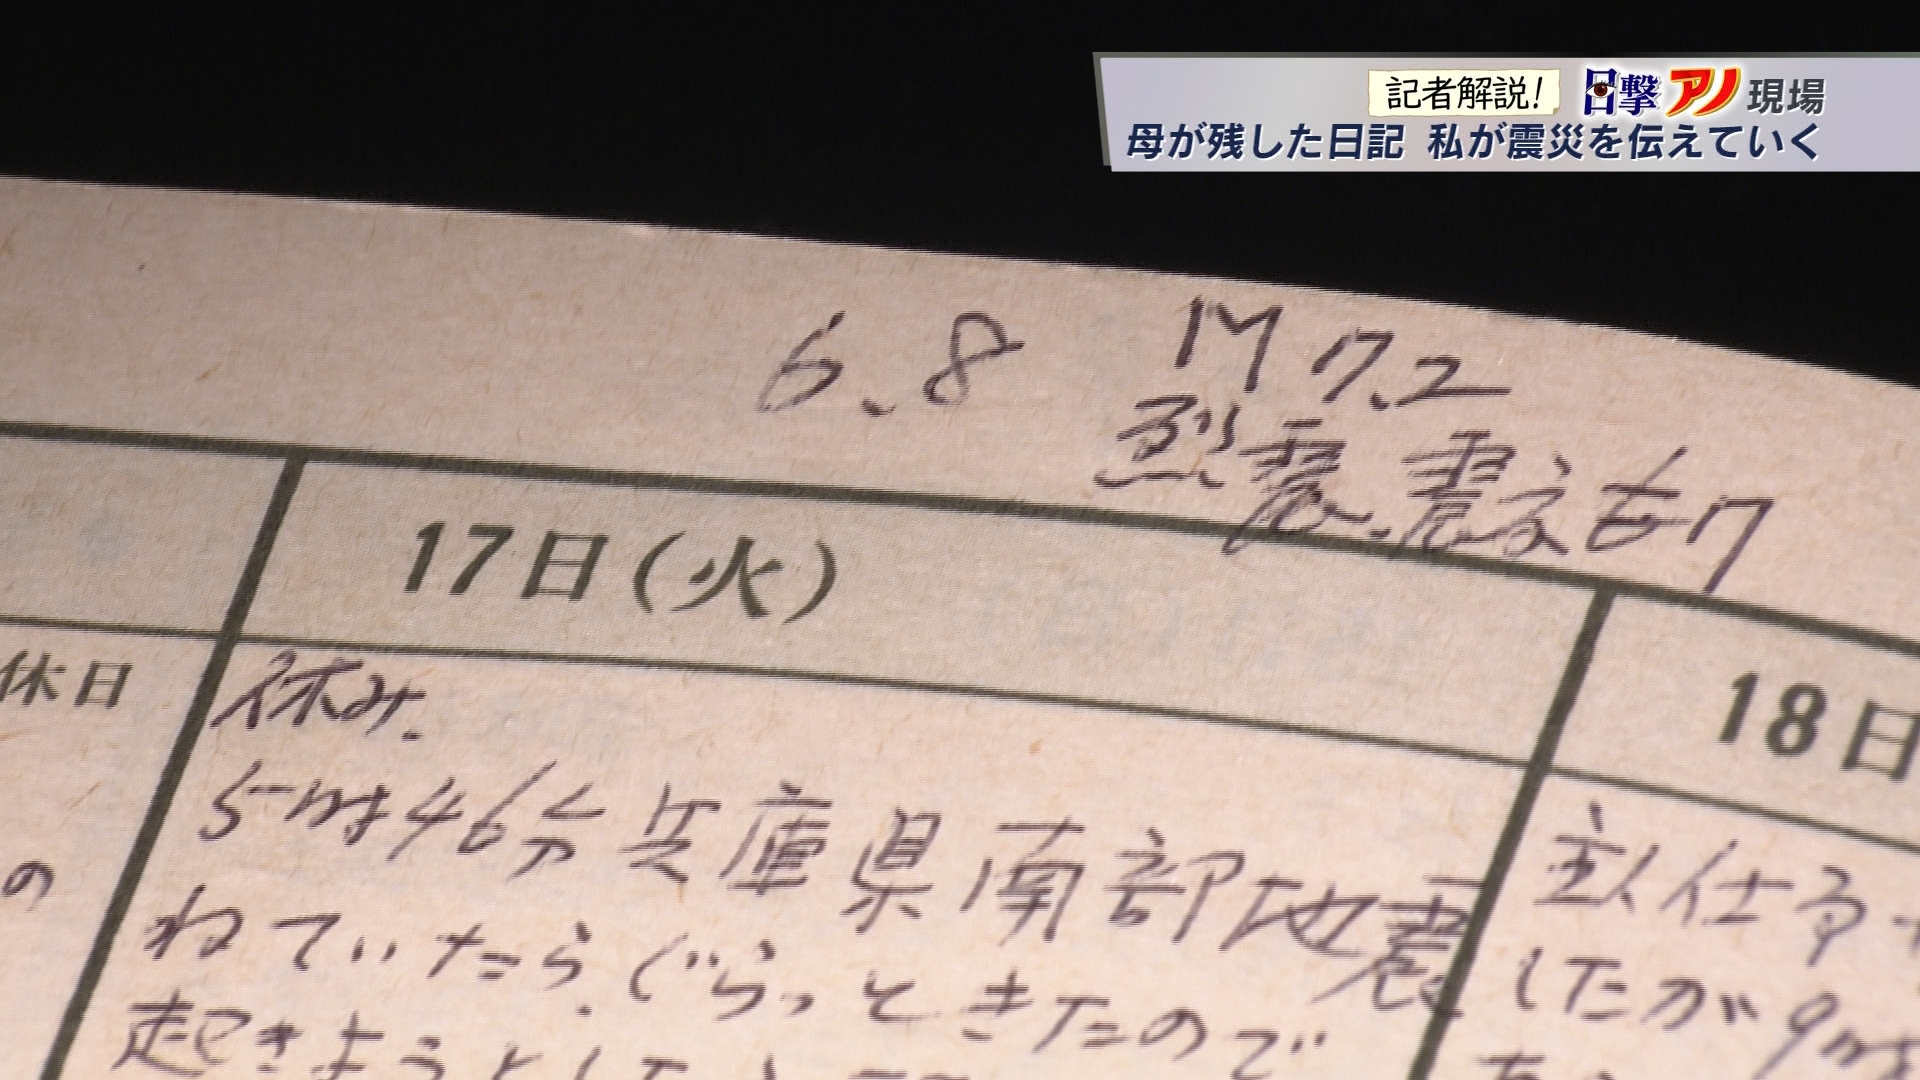 記者解説! 目撃アノ現場
母が残した日記 私が震災を伝えていく
6.8 M7.2
烈震.震度7
17日(火)
18日
休日
休み.
5時46分兵庫県南部地震
ねていたら.ぐらっときたので
起きようとした
の
主人仕事
したが9時